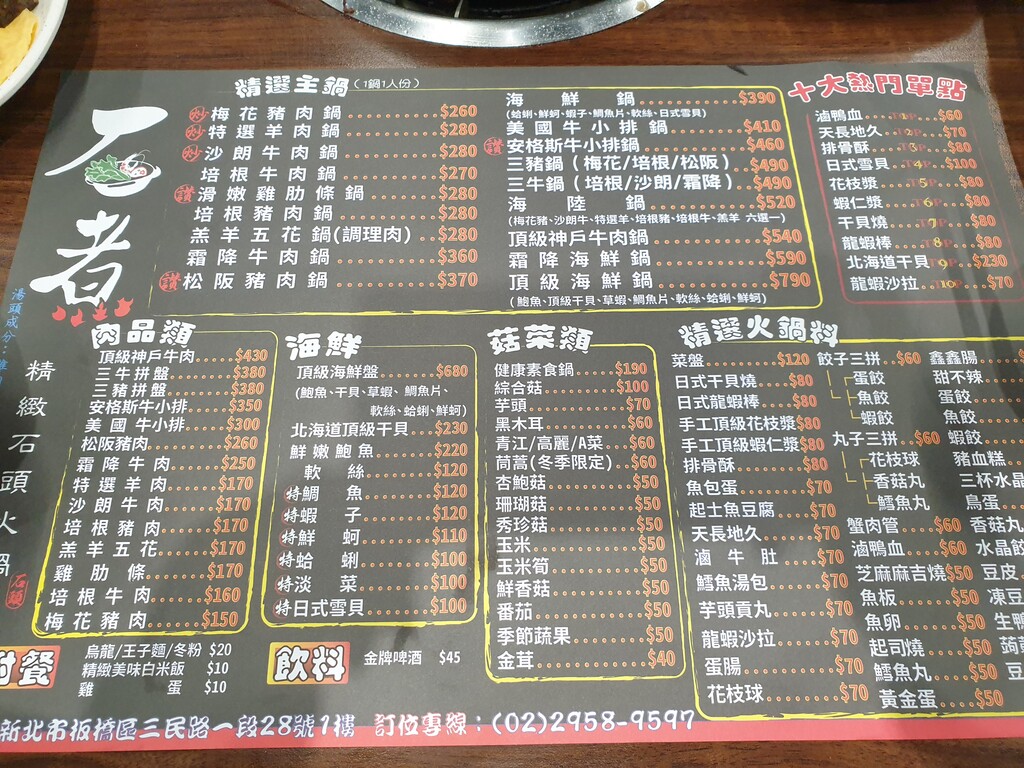 石者
湯頭成分：
精緻石頭火鍋
石頭
精選主鍋(1鍋1人份)
炒 梅花豬肉鍋 $260
炒 特選羊肉鍋 $280
炒 沙朗牛肉鍋 $280
培根牛肉鍋 $270
讚 滑嫩雞肋條鍋 $280
培根豬肉鍋 $280
羔羊五花鍋(調理肉) $280
霜降牛肉鍋 $360
讚 松阪豬肉鍋 $370
海鮮鍋 $390
(蛤蜊、鮮蚵、蝦子、鯛魚片、軟絲、日式雪貝)
美國牛小排鍋 $410
讚 安格斯牛小排鍋 $460
三豬鍋(梅花/培根/松阪) $490
三牛鍋(培根/沙朗/霜降) $490
海陸鍋 $520
(梅花豬、沙朗牛、特選羊、培根豬、培根牛、羔羊 六選一)
頂級神戶牛肉鍋 $540
霜降海鮮鍋 $590
頂級海鮮鍋 $790
(鮑魚、頂級干貝、草蝦、鯛魚片、軟絲、蛤蜊、鮮蚵)
十大熱門單點
滷鴨血 TOP1 $60
天長地久 TOP2 $70
排骨酥 TOP3 $80
日式雪貝 TOP4 $100
花枝漿 TOP5 $80
蝦仁漿 TOP6 $80
干貝燒 TOP7 $80
龍蝦棒 TOP8 $80
北海道干貝 TOP9 $230
龍蝦沙拉 TOP10 $70
肉品類
頂級神戶牛肉 $430
三牛拼盤 $380
三豬拼盤 $380
安格斯牛小排 $350
美國牛小排 $300
松阪豬肉 $260
霜降牛肉 $250
特選羊肉 $170
沙朗牛肉 $170
培根豬肉 $170
羔羊五花 $170
雞肋條 $170
培根牛肉 $160
梅花豬肉 $150
海鮮
頂級海鮮盤 $680
(鮑魚、干貝、草蝦、鯛魚片、
軟絲、蛤蜊、鮮蚵)
北海道頂級干貝 $230
鮮嫩鮑魚 $220
軟絲 $120
特 鯛魚 $120
特 蝦子 $120
特 鮮蚵 $110
特 蛤蜊 $100
特 淡菜 $100
特 日式雪貝 $100
菇菜類
健康素食鍋 $190
綜合菇 $100
芋頭 $70
黑木耳 $60
青江/高麗/A菜 $60
茼蒿(冬季限定) $60
杏鮑菇 $50
珊瑚菇 $50
秀珍菇 $50
玉米 $50
玉米筍 $50
鮮香菇 $50
番茄 $50
季節蔬果 $50
金茸 $40
精選火鍋料
菜盤 $120
日式干貝燒 $80
日式龍蝦棒 $80
手工頂級花枝漿 $80
手工頂級蝦仁漿 $80
排骨酥 $80
魚包蛋 $70
起士魚豆腐 $70
天長地久 $70
滷牛肚 $70
鱈魚湯包 $70
芋頭貢丸 $70
龍蝦沙拉 $70
蛋腸 $70
花枝球 $70
餃子三拼 $60
蛋餃
魚餃
蝦餃
丸子三拼 $60
花枝球
香菇丸
鱈魚丸
蟹肉管 $60
滷鴨血 $60
芝麻麻吉燒 $50
魚板 $50
魚卵 $50
起司燒 $50
鱈魚丸 $50
黃金蛋 $50
鑫鑫腸
甜不辣
蛋餃
魚餃
蝦餃
豬血糕
三杯水晶
鳥蛋
香菇丸
水晶餃
豆皮
凍豆
生鴨
蒟蒻
豆
附餐
烏龍/王子麵/冬粉 $20
精緻美味白米飯 $10
雞蛋 $10
飲料
金牌啤酒 $45
新北市板橋區三民路一段28號1樓 訂位專線：(02)2958-9597